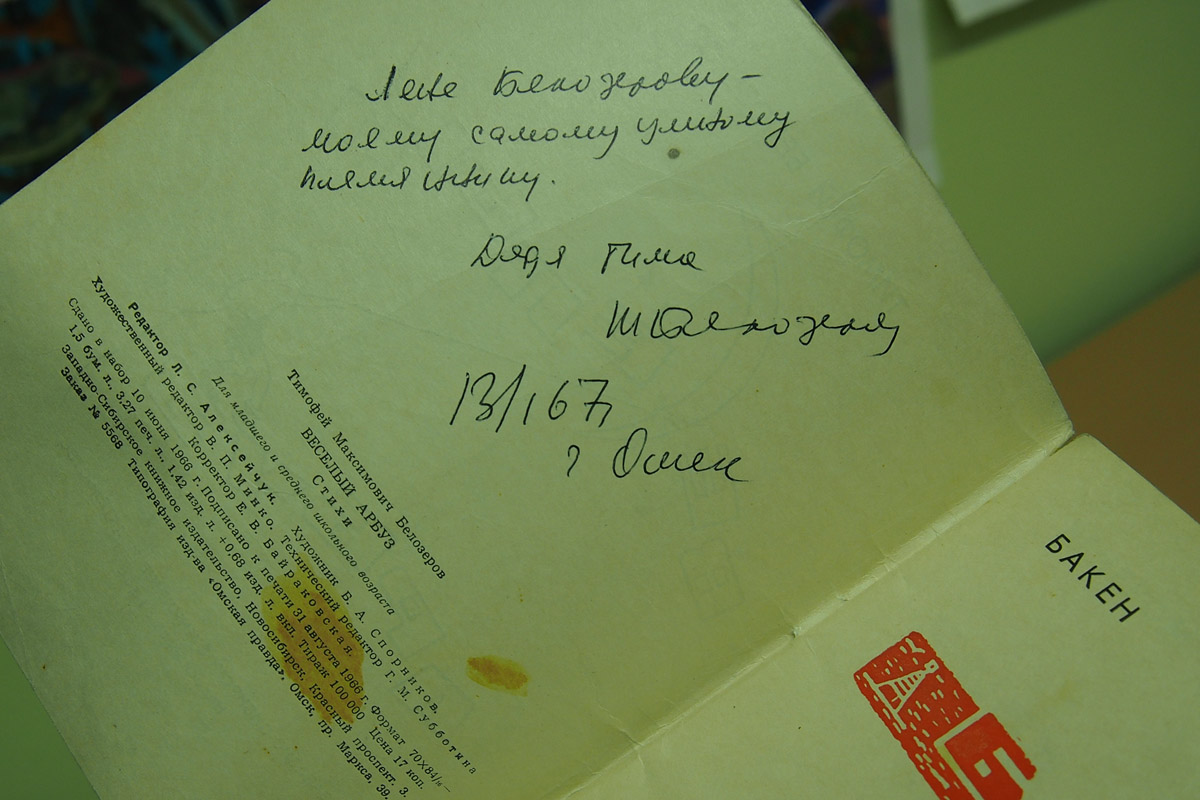 Лене Белозерову –
моему самому умному
племяннику.
Дядя Тима
ТМБелозеров
13/I 67г
г Омск
Тимофей Максимович Белозеров
ВЕСЕЛЫЙ АРБУЗ
Стихи
Для младшего и среднего школьного возраста
Редактор Л. С. Алексейчук. Художник Б. А. Спорников.
Художественный редактор В. П. Минко. Технический редактор Г. М. Субботина
Корректор Е. В. Байраковская.
Сдано в набор 10 июня 1966 г. Подписано к печати 31 августа 1966 г. Формат 70Х84/
1,5 бум. л., 3,27 печ. л., 1,42 изд. л. +0,68 изд. л. вкл. Тираж 100 000 Цена 17 коп.
Западно-Сибирское книжное издательство. Новосибирск, Красный проспект, 3.
Заказ № 5568 Типография изд-ва «Омская правда». Омск, пр. Маркса, 39.
БАКЕН
Б